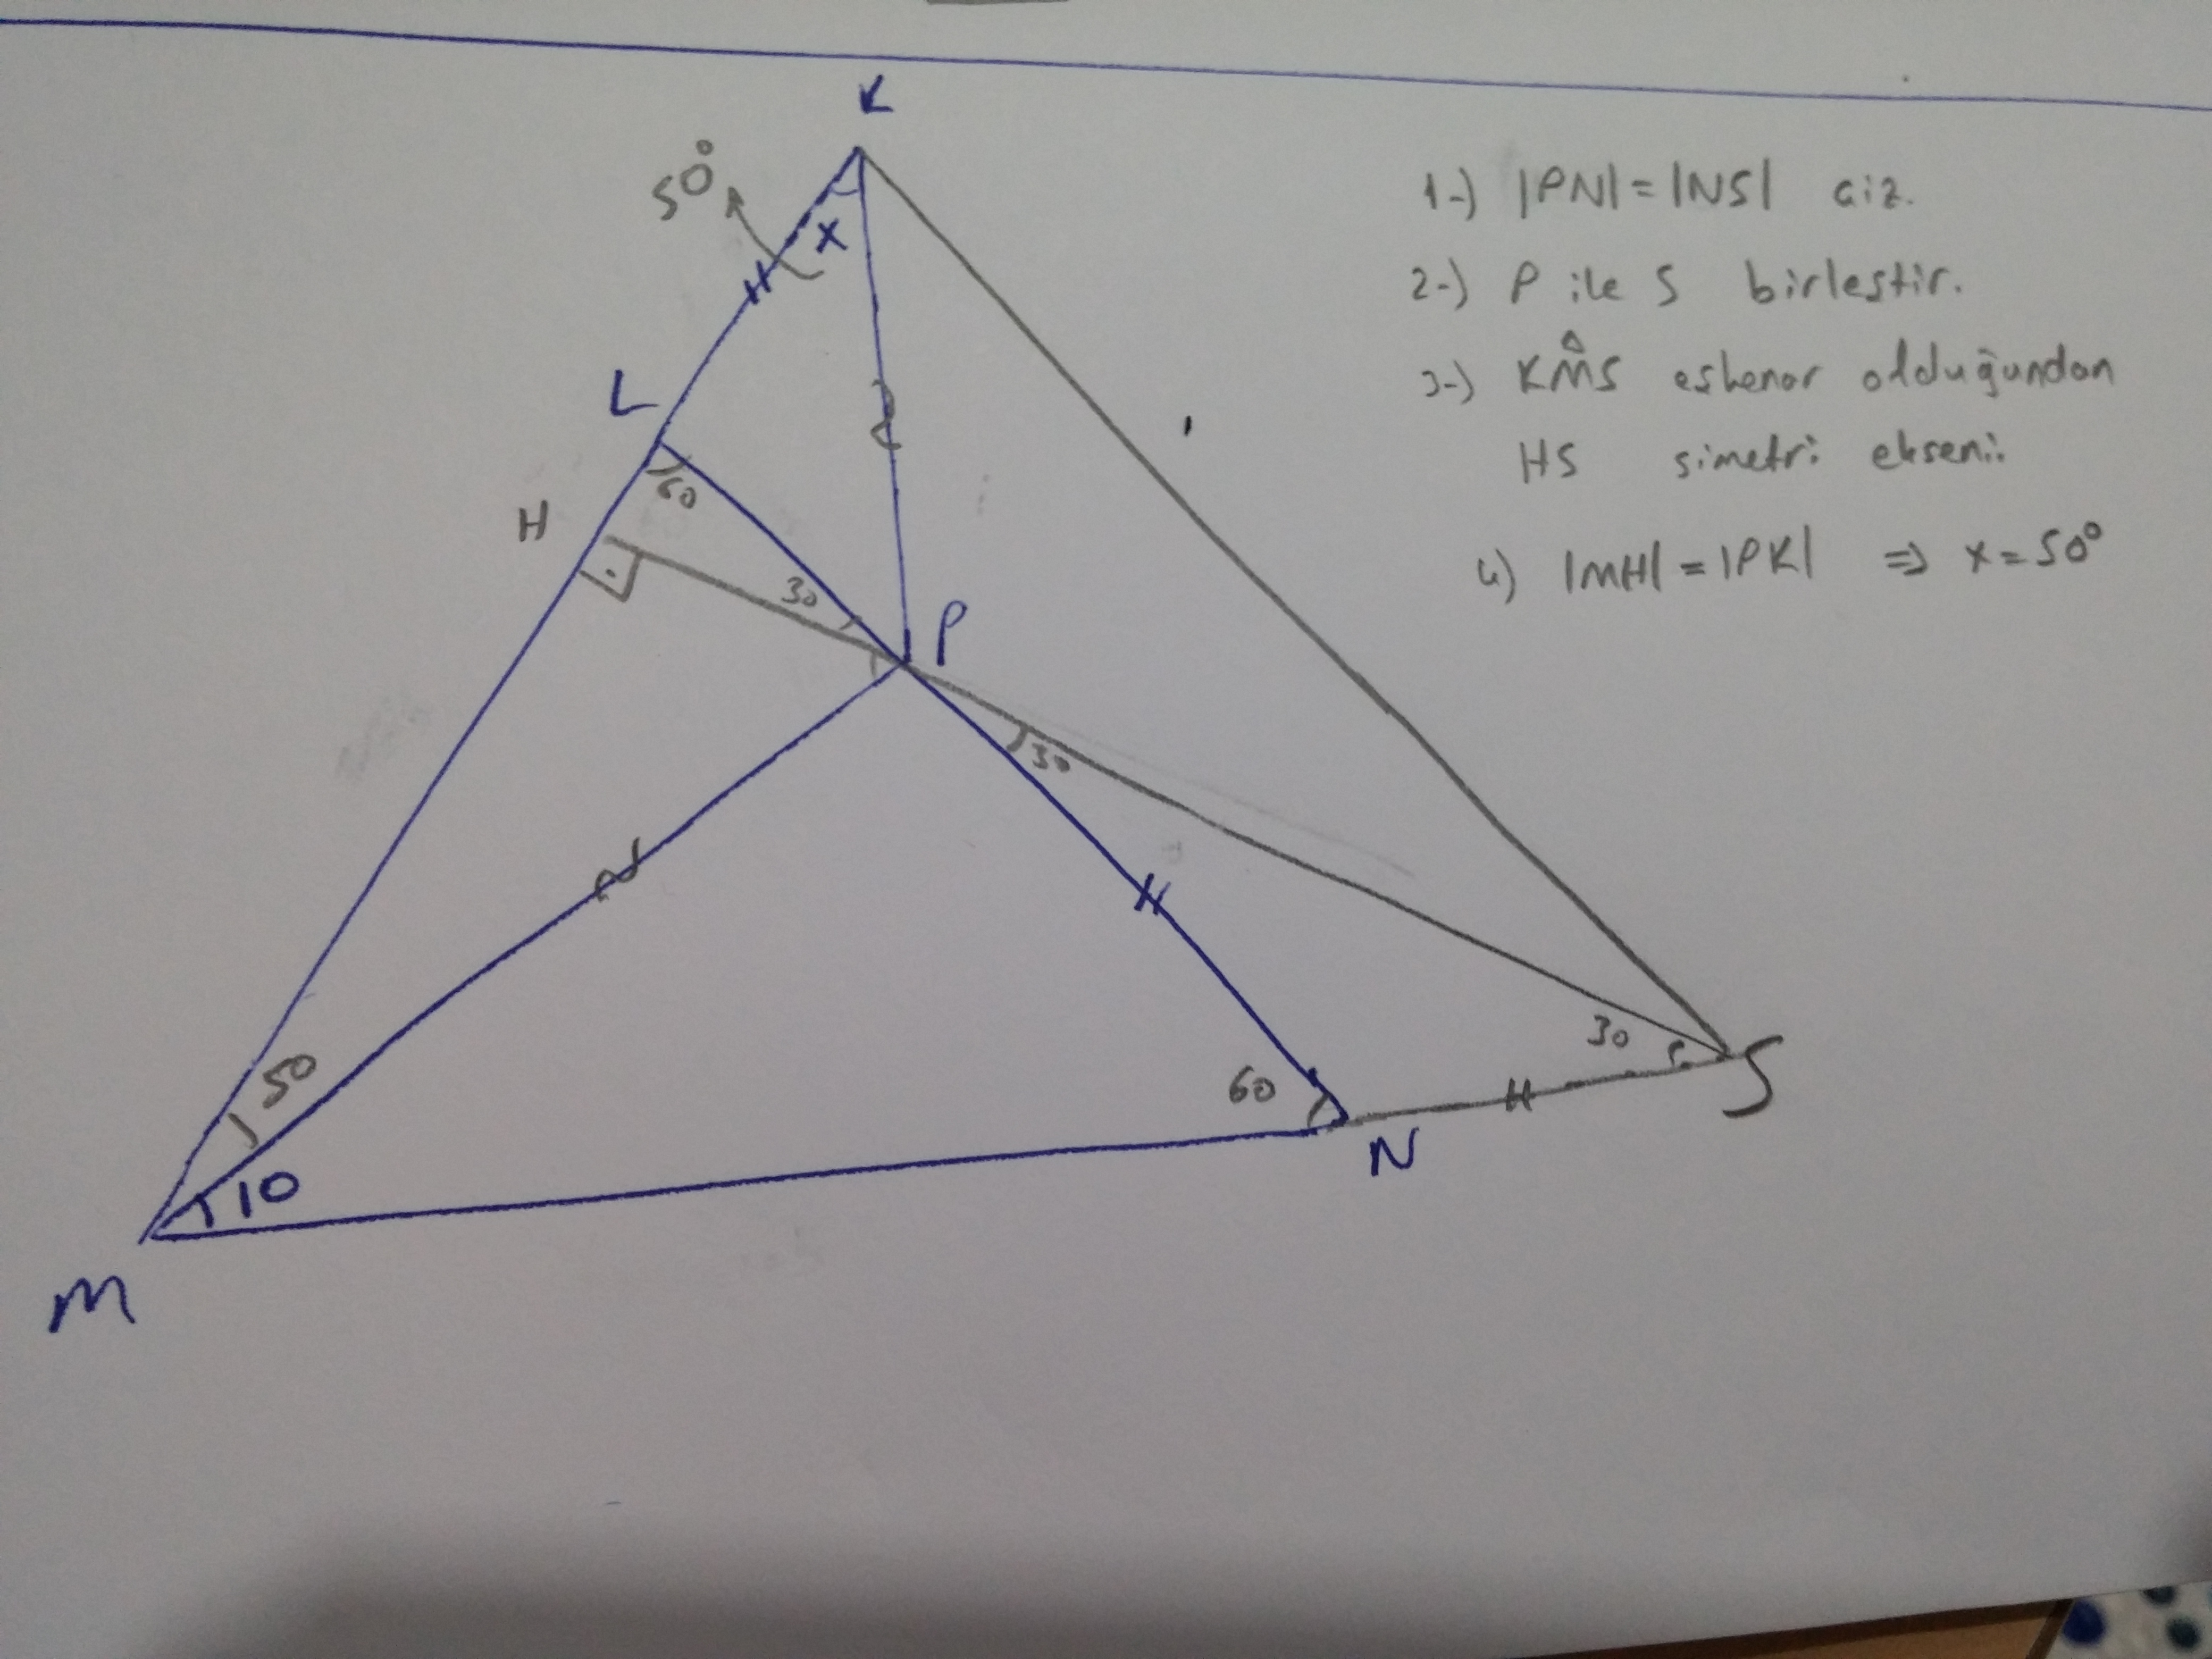 K
50°
x
L
60
H
30
P
30
50
10
60
30
S
N
M
1-) |PN| = |NS| çiz.
2-) P ile S birleştir.
3-) KMS eşkenar olduğundan
HS simetri ekseni.
4) |MH| = |PK| ⇒ x = 50°